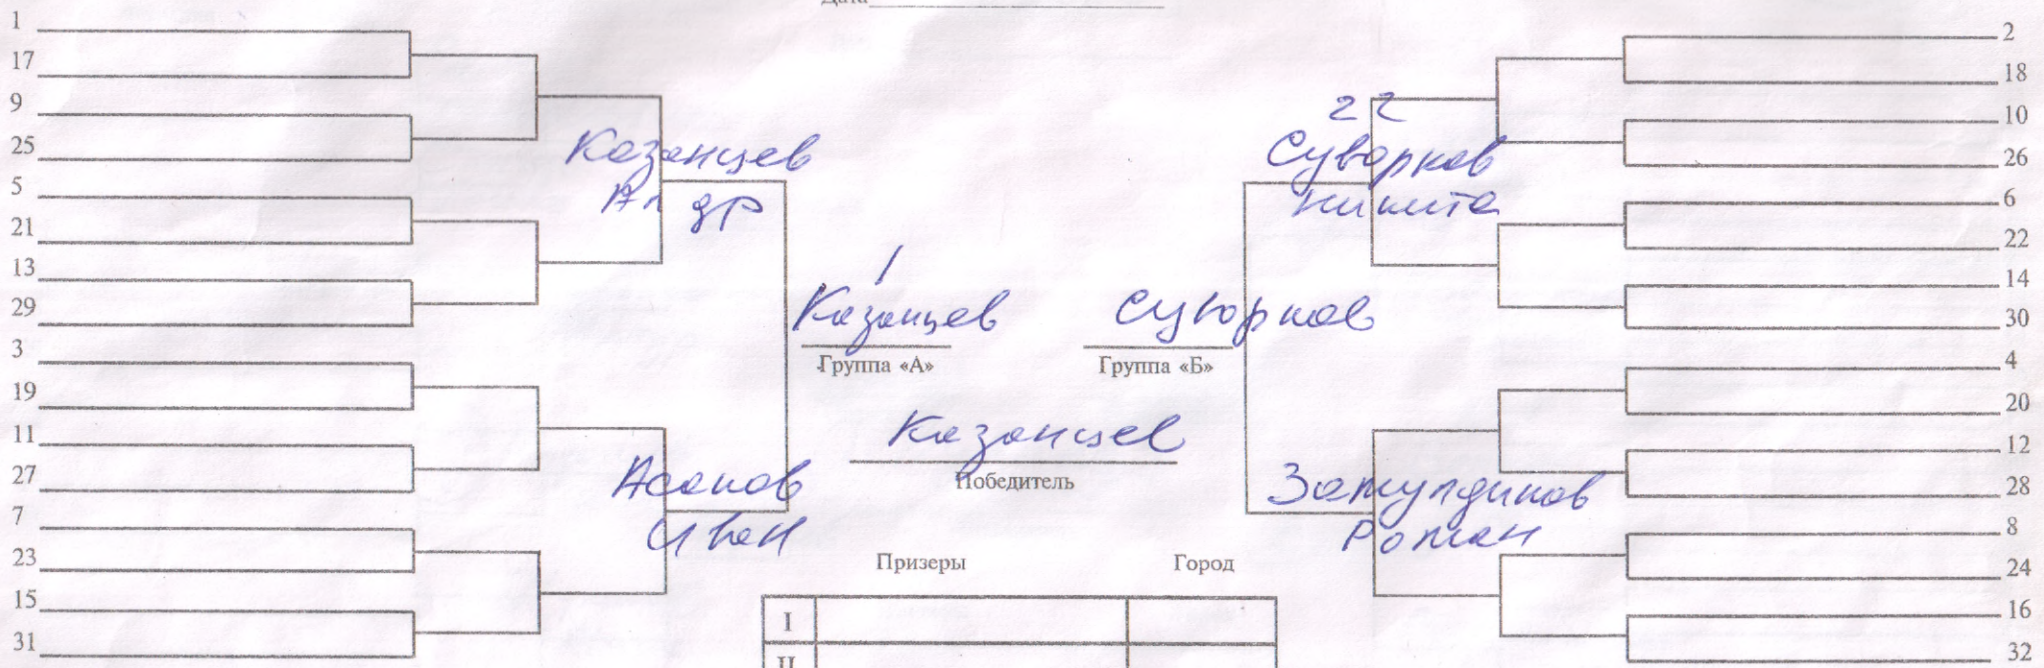 Дата
1
17
9
25
5
21
13
29
3
19
11
27
7
23
15
31
Казанцев
Ал др
Асанов
Иван
1
Казанцев
Группа «А»
Суворков
Группа «Б»
Казанцев
Победитель
Призеры Город
I
II
22
Суворков
Никита
Роман
2
18
10
26
6
22
14
30
4
20
12
28
8
24
16
32